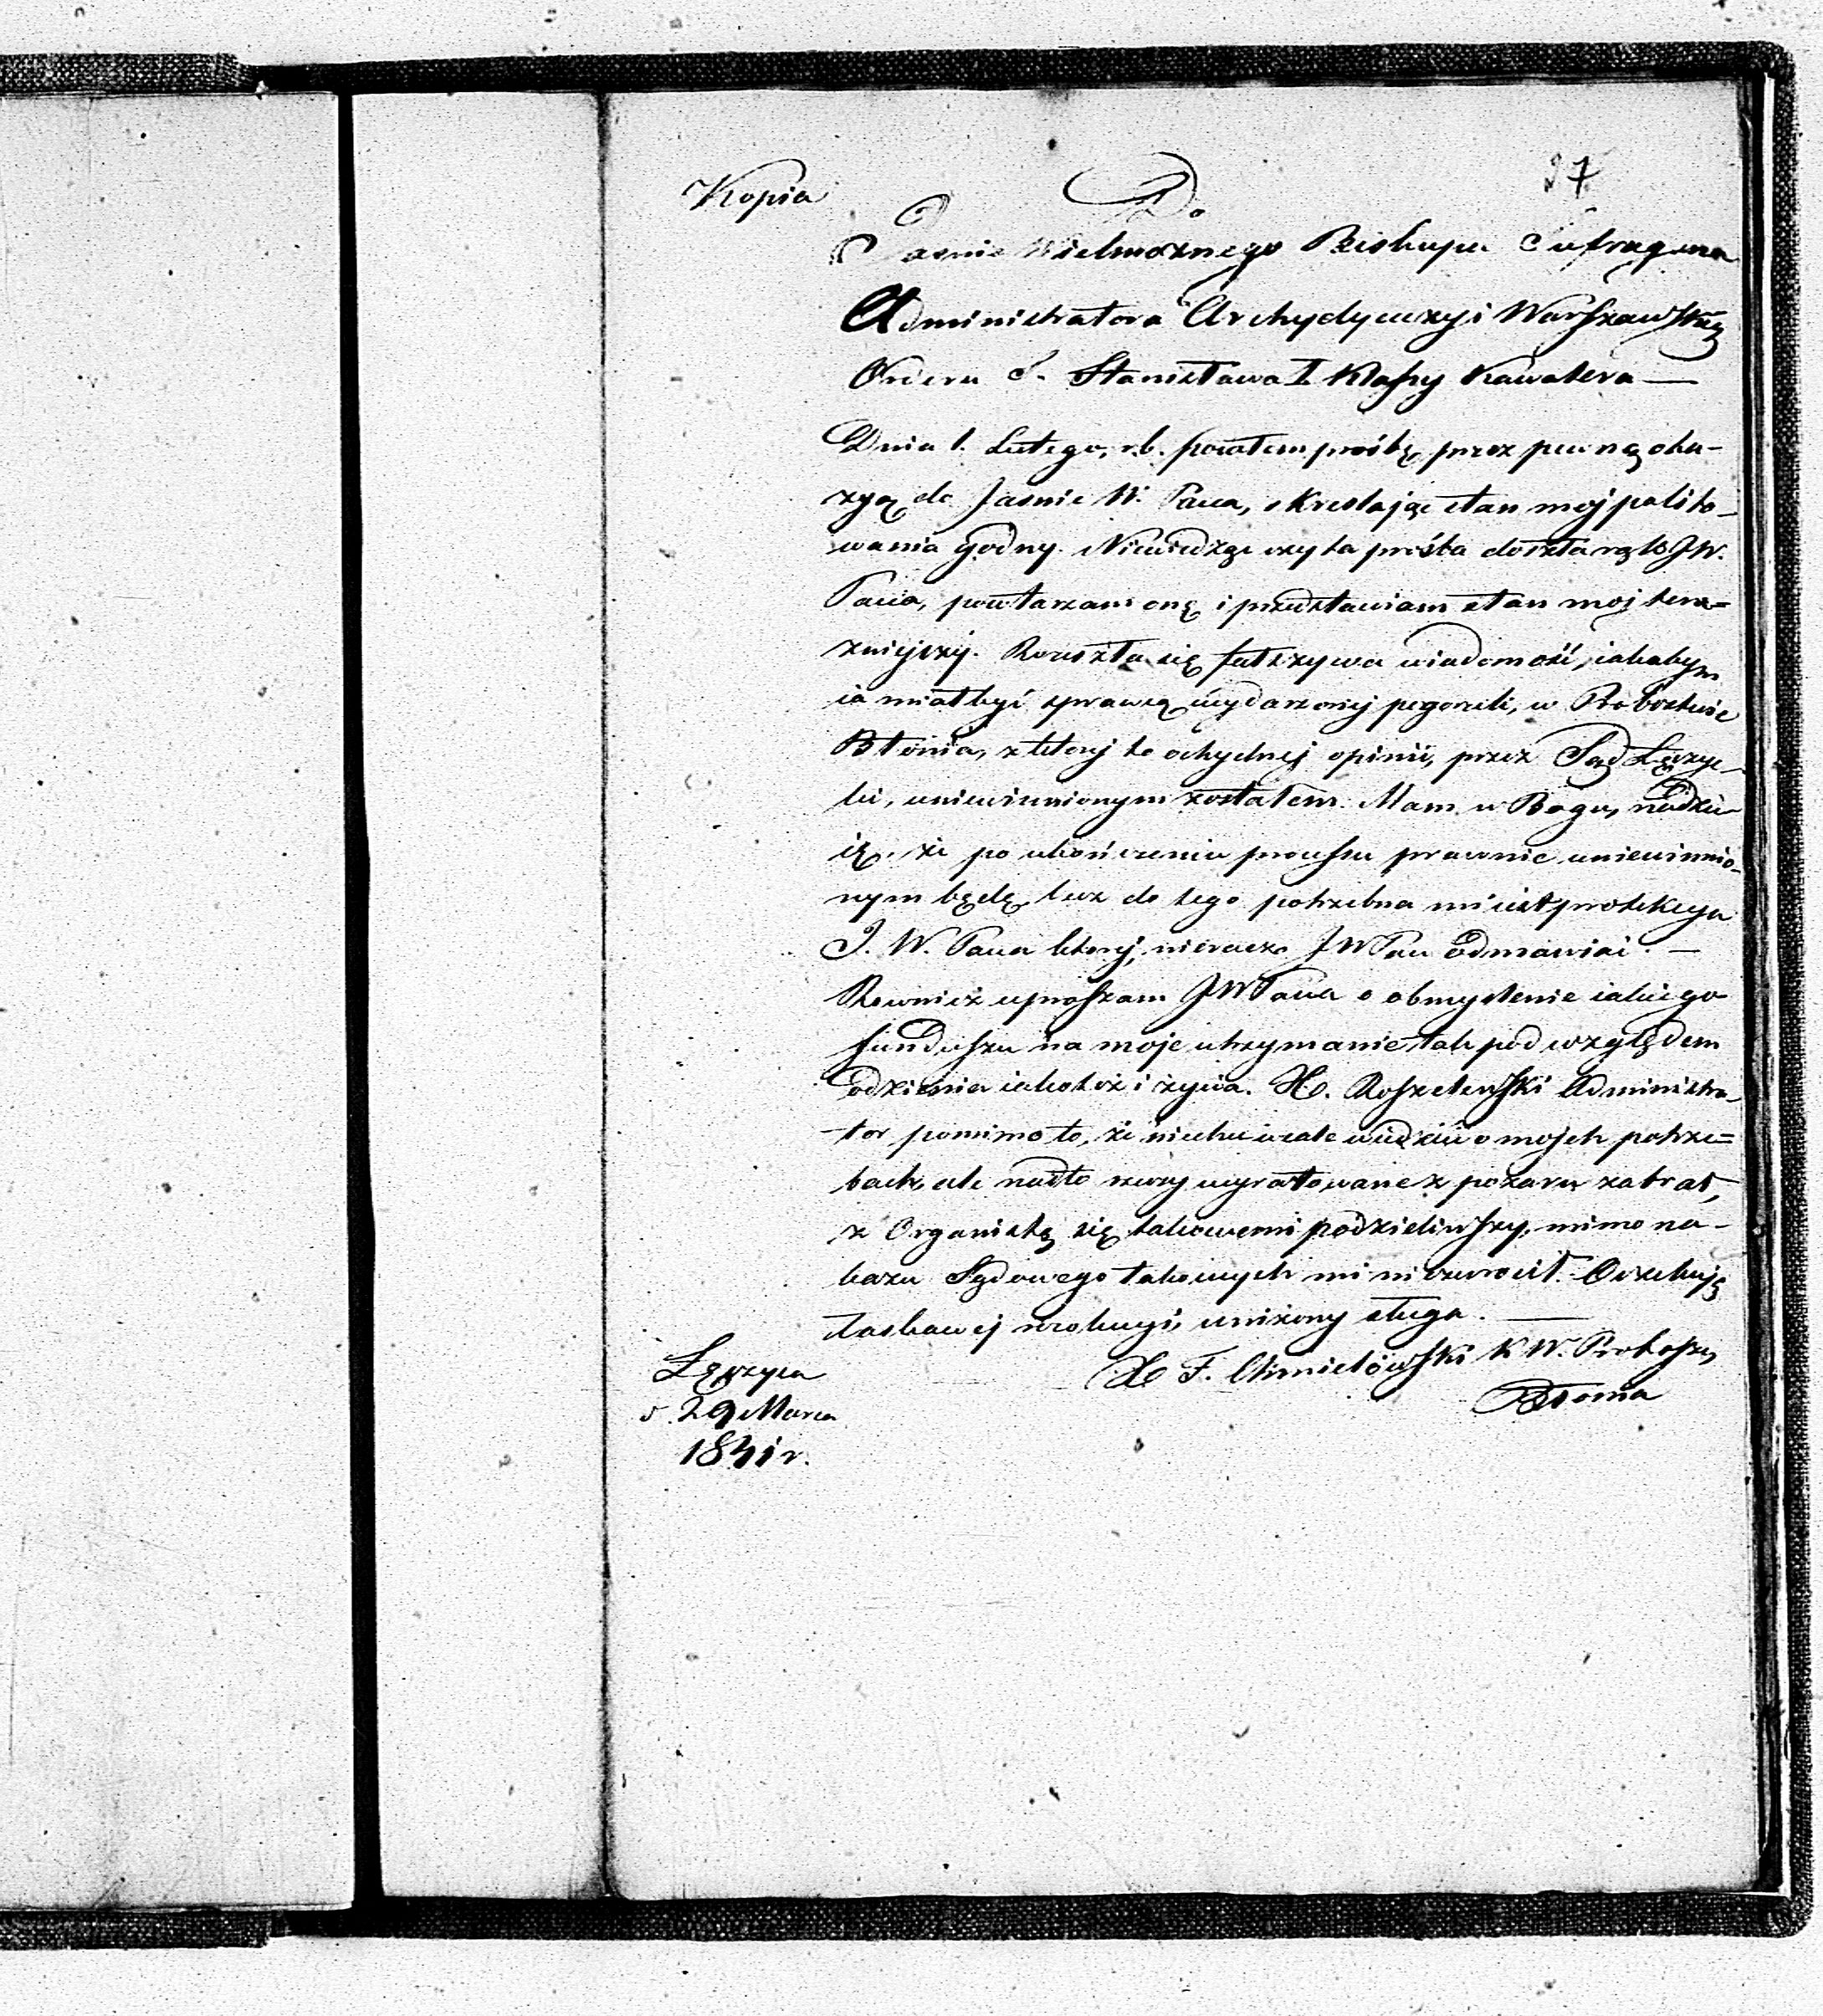 37
Kopia
Do
Jasnie Wielmożnego Biskupa Sufragana
Administratora Archydyecezyi Warszawskiey
Orderu S. Stanisława I Klassy Kawalera —
Dnia 1. Lutego, r.b. posłałem prośbę, przez pewną oka-
zyą do Jasnie W. Pana, skreślając stan moj polito-
wania godny. Niewiedząc czy ta prośba doszła rąk JW.
Pana, powtarzam onę i przedstawiam stan moj tera=
znieyszy. Rozeszła się fałszywa wiadomość, jakobym
ia miał być sprawcą wydarzoney pogorzeli, w Probostwie
Błonia, z ktorej to ochydnej opinii, przez Sąd Łęczyc-
ki, uniewinnionym zostałem. Mam w Bogu, nadzie-
ię, że po ukończeniu processu prawnie uniewinnio-
nym będę, lecz do tego potrzebna mi iest protekcya
J. W. Pana ktorej, nieracz JW Pan odmawiać. —
Rownież upraszam JW Pana o obmyslenie iakiego
funduszu na moje utrzymanie, tak pod względem
odzienia iakoteż i życia. X. Roszelewski Administra-
-tor pomimo to, że niechce wcale wiedzieć o mojch potrze=
bach, ale nadto rzeczy wyratowane z pożaru zabrał,
z Organistą się takowemi podzieliwszy, mimo na-
kazu Sądowego takowych mi niezwrocił. Oczekuję
łaskawej rezolucyi, uniżony sługa. —
X F. Chmielowski K W. Proboszcz
Błonia
Łęczyca
d. 29 Marca
1841 r.